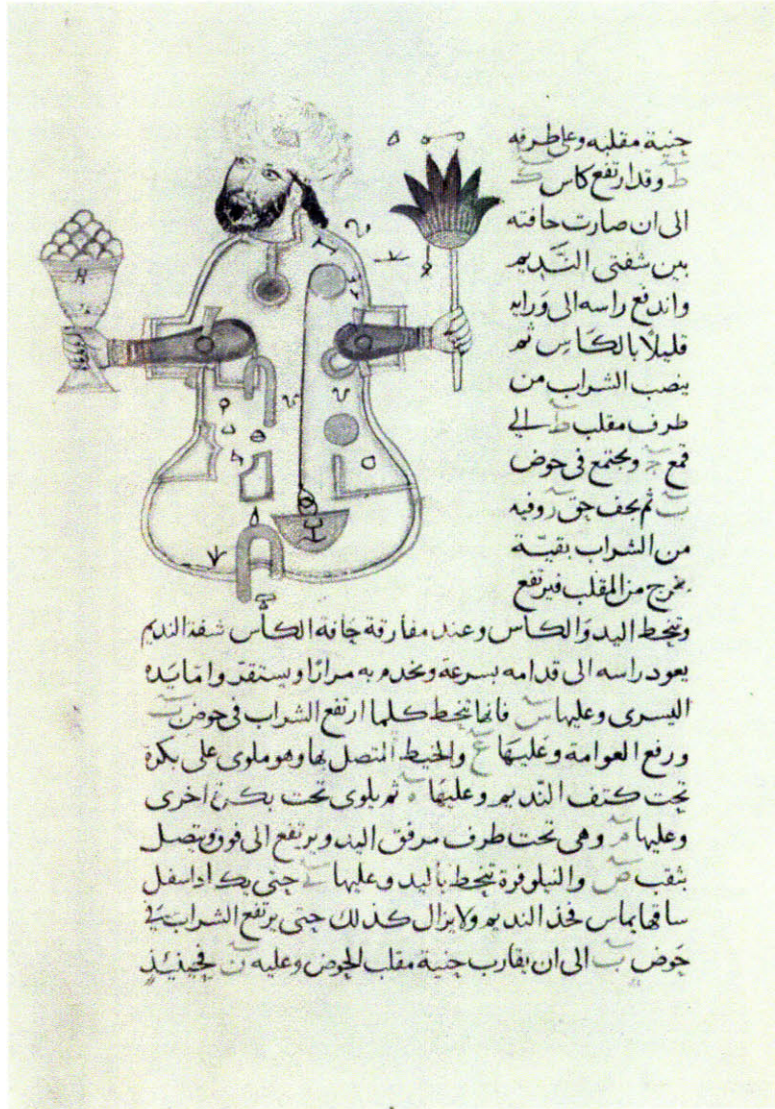 جنية مقلبه وعلى طرفه
ط وقد ارتفع كاس ك
الى ان صارت حافته
بين شفتى النديم
واندفع راسه الى ورايه
قليلًا بالكاس ثم
ينصب الشراب من
طرف مقلب ط الي
قمع ويجتمع فى حوض
ب ثم يجف حق ر وفيه
من الشراب بقيّة
يخرج من المقلب فيرتفع
وتنحط اليد والكاس وعند مفارقة حافة الكاس شفة النديم
يعود راسه الى قدامه بسرعة ويخدم به مرارًا ويستقر واما يده
اليسرى وعليها س فانها تنحط كلما ارتفع الشراب فى حوض ب
ورفع العوامة وعليها ع والخيط المتصل بها وهو ملوى على بكرة
تحت كتف النديم وعليها ه ثم يلوى تحت بكرة اخرى
وعليها م وهى تحت طرف مرفق اليد ويرتفع الى فوق ويتصل
بثقب ص والنيلوفرة تنحط باليد وعليها حتى يكاد اسفل
ساقها يماس فخذ النديم ولا يزال كذلك حتى يرتفع الشراب في
حوض ب الى ان يقارب جنية مقلب الحوض وعليه ن فحينئذ